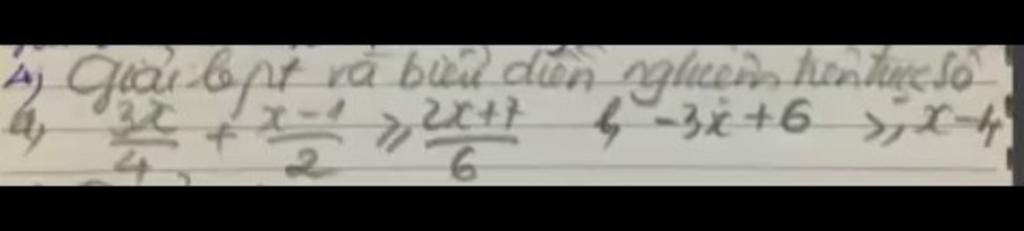 4) Giải bpt và biểu diễn nghiệm trên trục số
a, 3x/4 + x-1/2 ≥ 2x+7/6 b, -3x+6 ≥ x-4